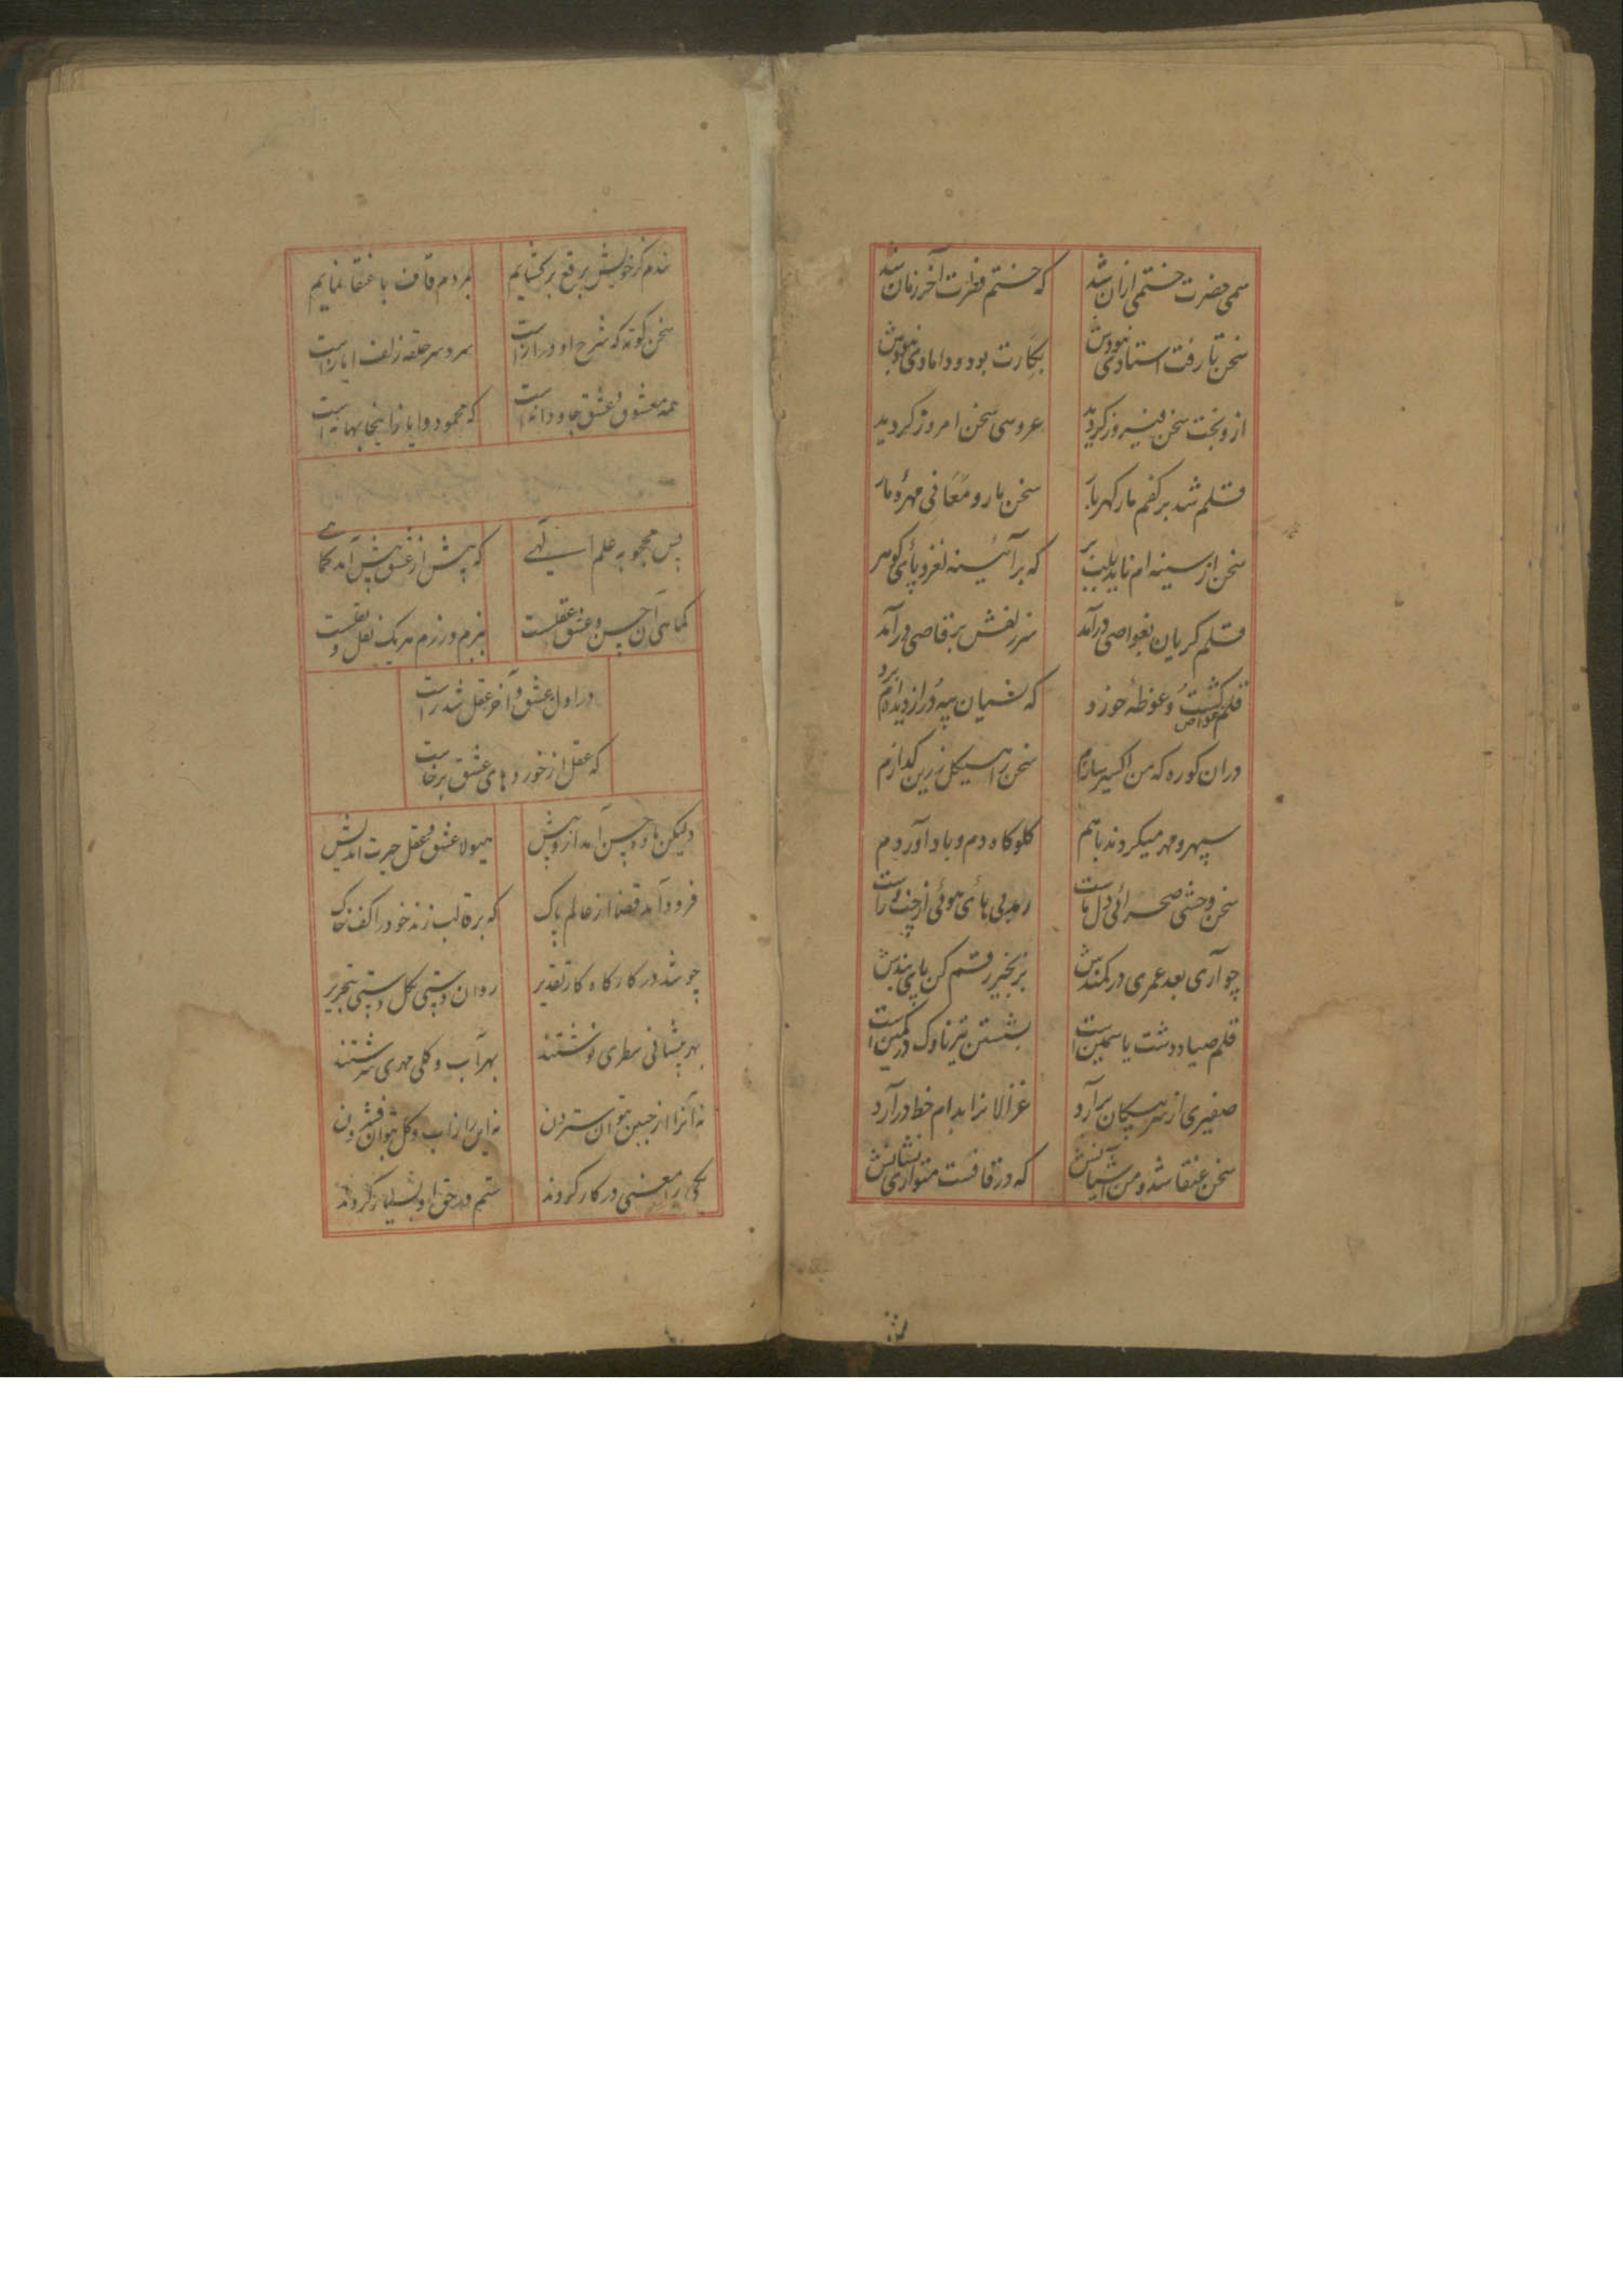 سمی حضرت ختمی ازان شد که ختم فترت آخر زمان شد
سخن تا رفت استادی نبودش بکارت بود و دامادی نبودش
ازو بخت سخن فیروز گردید عروسی سخن امروز گردید
قلم شد بر کفم مار گهربار سخن مار و معانی مهرهٔ مار
سخن از سینه ام ناید بلب بر که بر آئینه لغزد پای گوهر
قلم گریان بغواصی درآمد سر زلفش برقاصی درآمد
قلم غواص گشت و غوطهٔ خورد که
دران کوره که من اکسیر سازم سخن را هیکل زرین گدازم
سپهر و مهر میکردند باهم
سخن وحشی صحرائی دل ماست
چو آری بعد عمری در کمندش بزنجیر رقم کن پای بندش
قلم صیاد دشت یاسمین است بشستن تیر ناوک در کمین است
صفیری از سر پیکان برآرد غزالانرا بدام خط درآرد
سخن عنقا شد و من آشیانش که در قافست متواری نشانش
ندم گر خویش برقع برگشایم بمردم قاف با عنقا نمایم
سخن کوته که شرح او دراز است سر و سر حلقه زلف ایاز است
همه معشوق و عشق جاودانه است که محمود و ایاز اینجا بهانه است
پس محجوبه علم الهی که پیش از عشق پیش آمد کماهی
کماهی آن حسن و عشق و عقلست ببزم و رزم هریک نعل و نقلست
در اول عشق و آخر عقل شد راست
که عقل از خورد و های عشق برخاست
ولیکن ماده حسن آمد از پیش هیولا عشق و عقل حیرت اندیش
فرود آمد قضا از عالم پاک که بر قالب زند خود را کف خاک
چو شد در کارگاه کار تقدیر روان دستی بگل دستی بتحریر
بهر پیشانی سطری نوشتند بهر آب و گلی مهری سرشتند
نه آنرا از جبین بتوان ستردن نه این را ز آب و گل بتوان فشردن
یکی را معنی در کار کردند ستم در حق او بسیار کردند